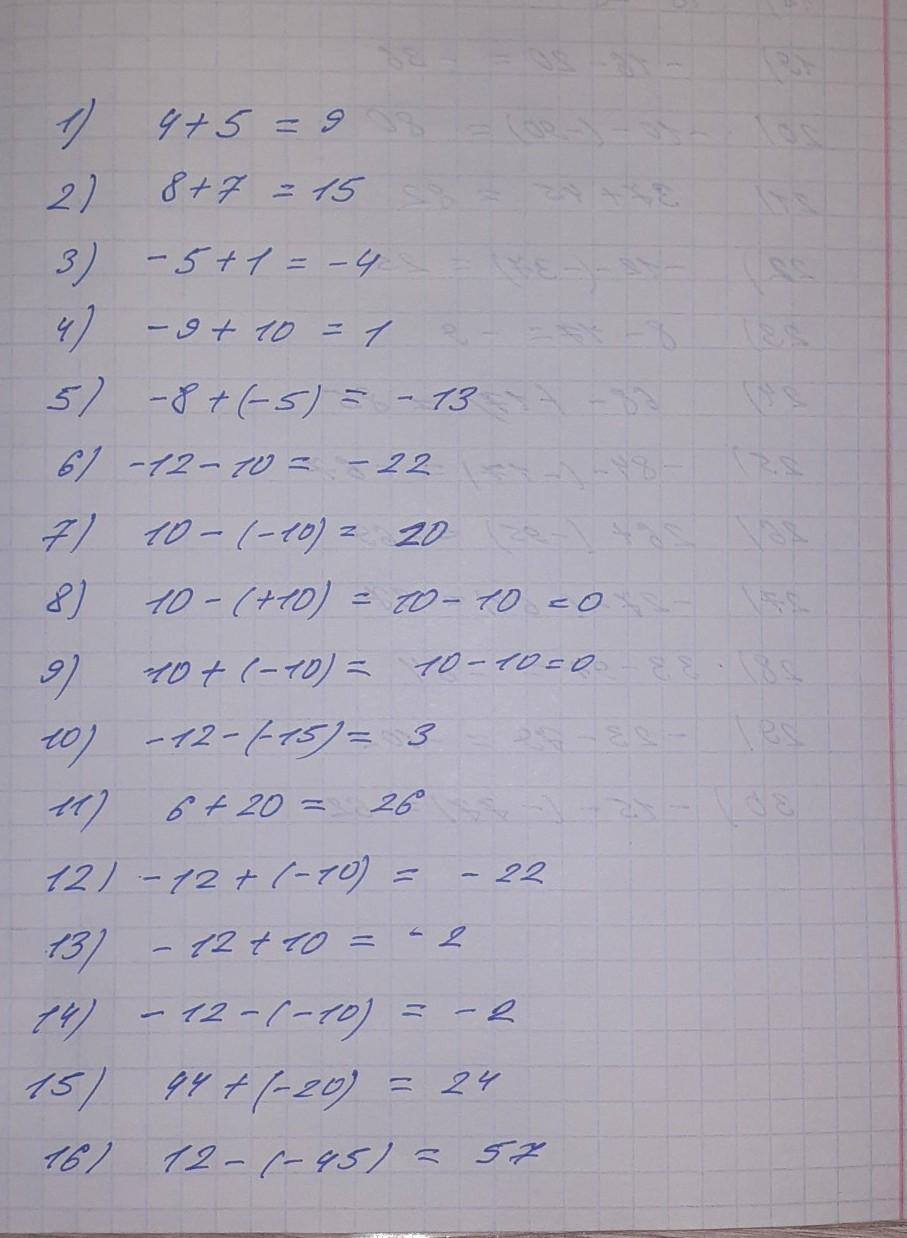 1) 4+5 = 9
2) 8+7 = 15
3) -5+1 = -4
4) -9+10 = 1
5) -8+(-5) = -13
6) -12-10 = -22
7) 10-(-10) = 20
8) 10-(+10) = 10-10 =0
9) 10+(-10) = 10-10=0
10) -12-(-15) = 3
11) 6+20 = 26
12) -12+(-10) = -22
13) -12+10 = -2
14) -12-(-10) = -2
15) 44+(-20) = 24
16) 12-(-45) = 57